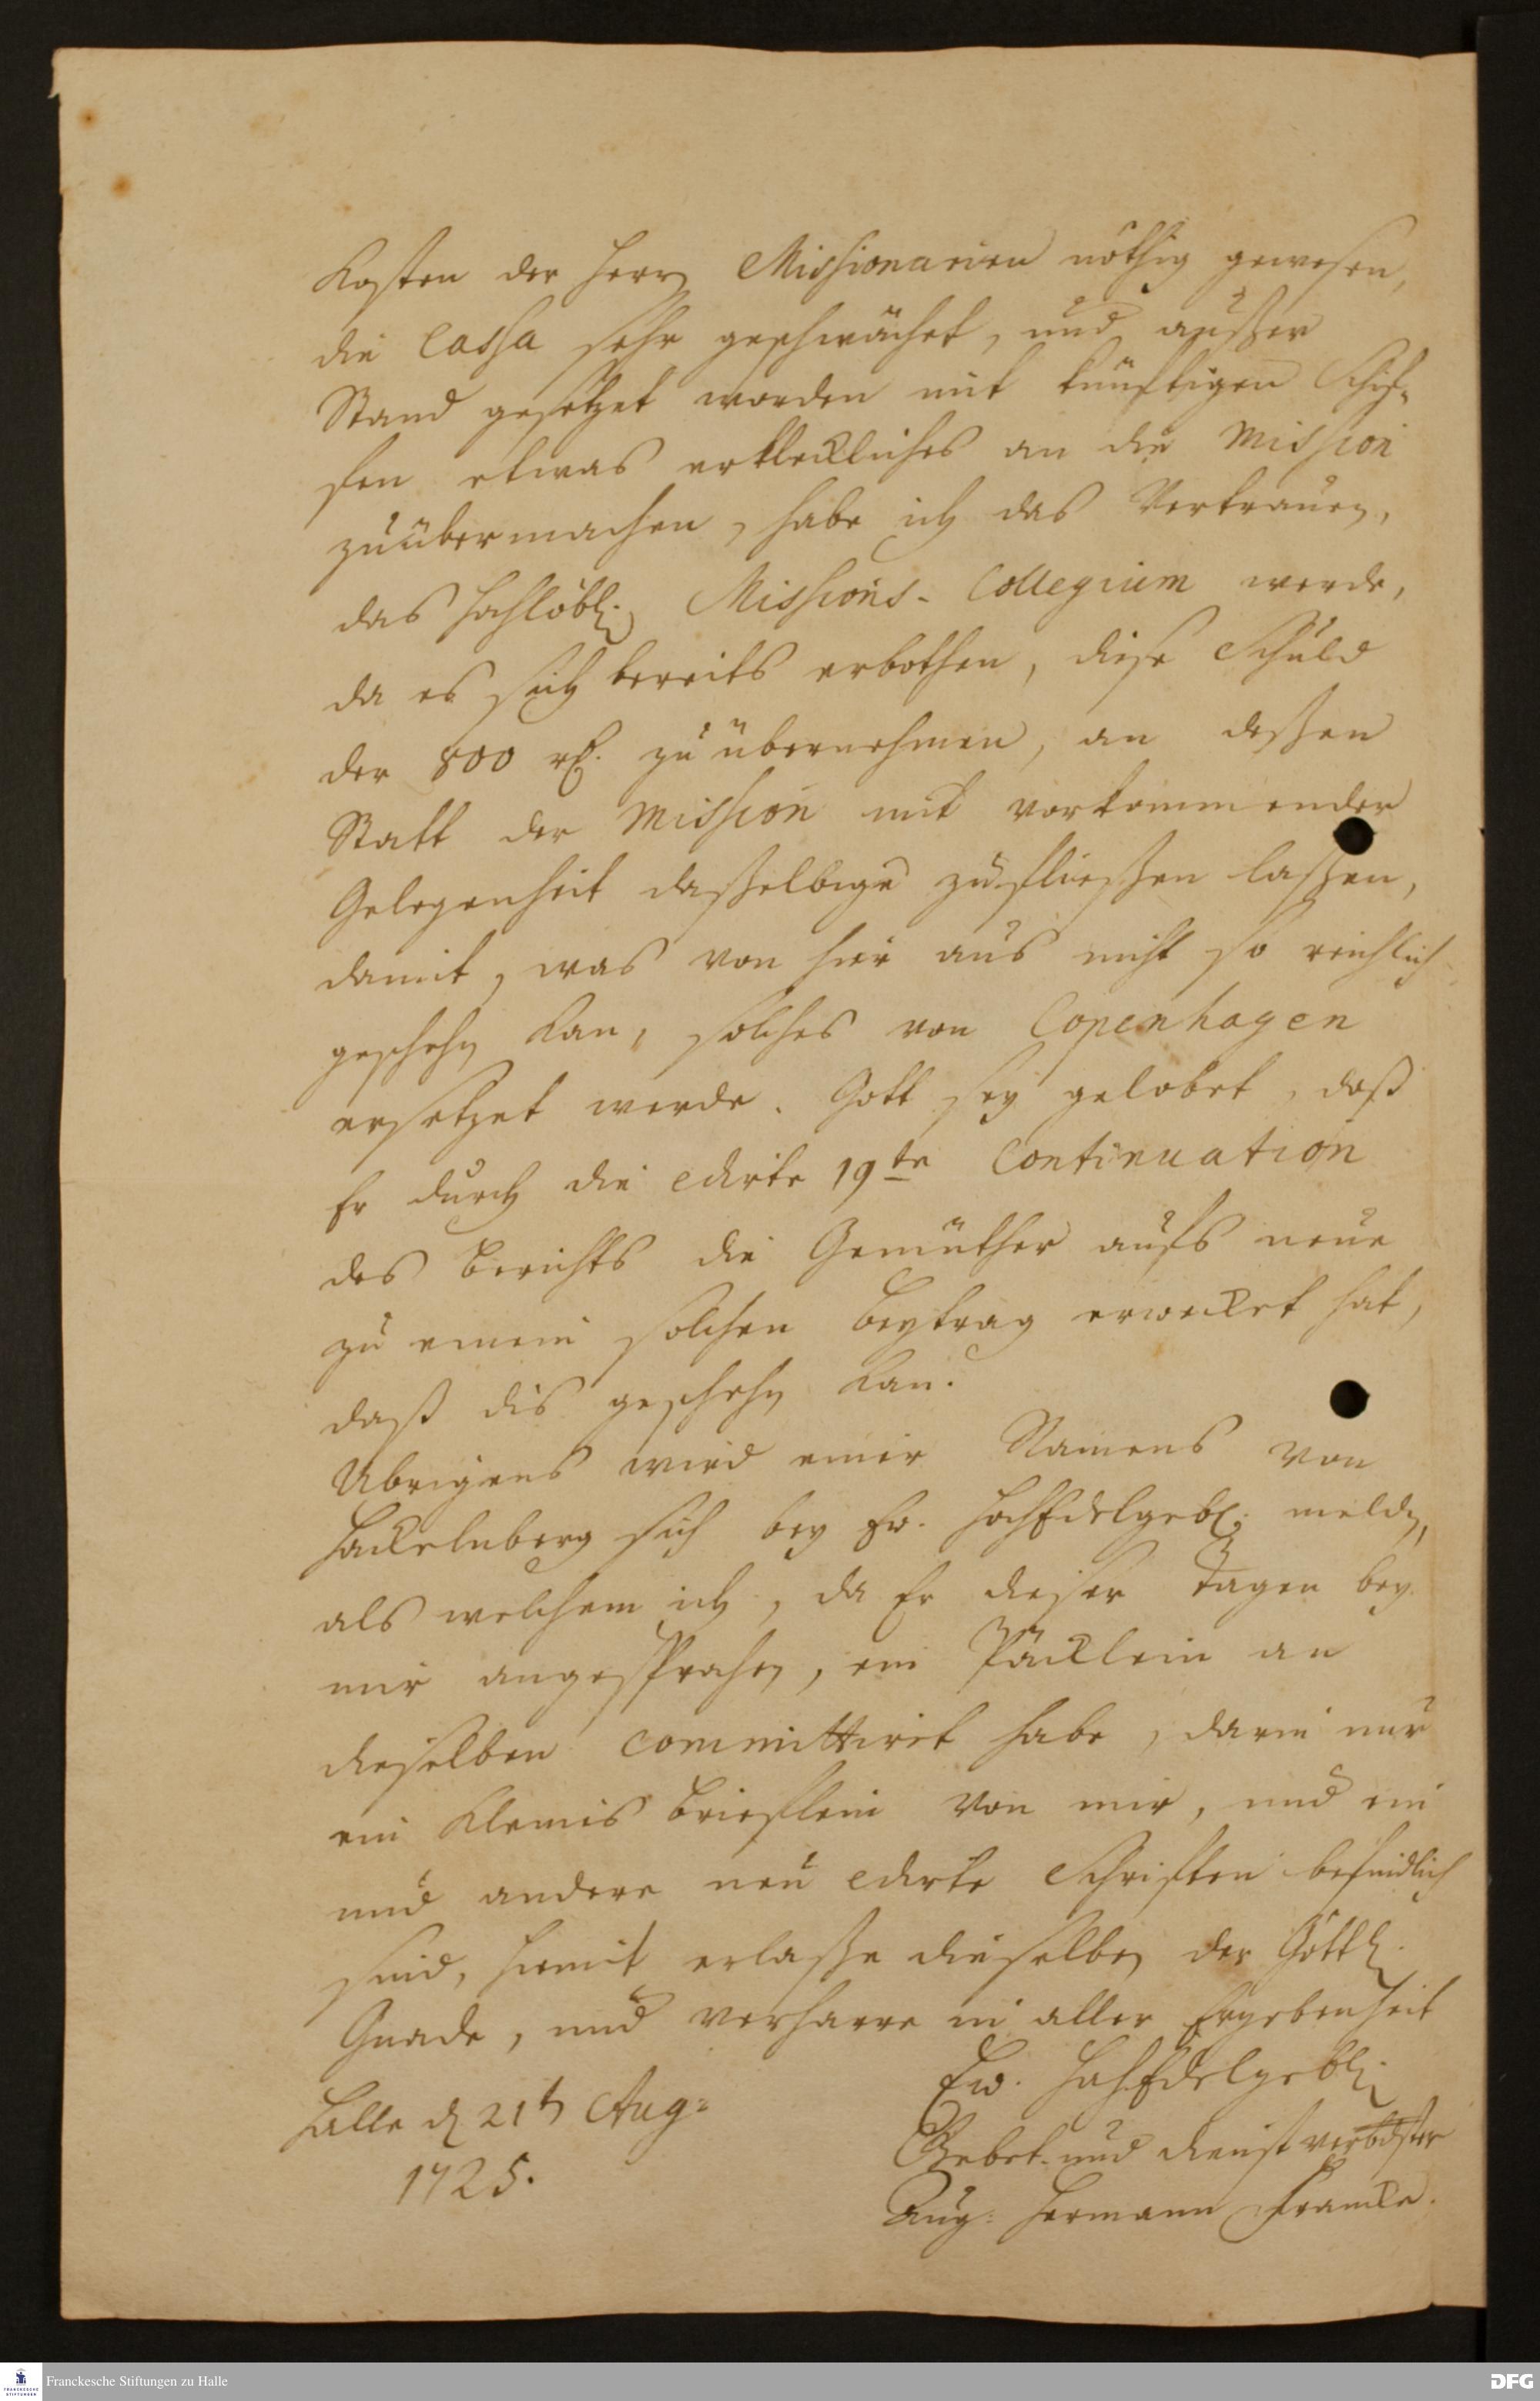 Kosten der Herrn Missionarien nöthig gewesen,
die Cassa sehr geschwächet, und außer
Stand gesetzet worden mit künftigen Schif-
fen etwas erkleckliches an die Mission
zuübermachen, habe ich das Vertrauen,
das hochlöbl. Missions-Collegium werde,
da es sich bereits erbothen, diese Schuld
der 800 rth. zu übernehmen, an dessen
Statt der Mission mit vorkommender
Gelegenheit dasselbige zufließen laßen,
damit, was von hier aus nicht so reichlich
geschehn kan, solches von Copenhagen
ersetzet werde. Gott sey gelobet, daß
Er durch die edirte 19te Continuation
des Berichts die Gemüther aufs neue
zu einem solchen Beytrag erwecket hat,
daß dis geschehn kan.
Ubrigens wird einer Namens von
Hackelnberg sich bey Ew. HochEdelgeb. melden,
als welchem ich, da Er dieser Tagen bey
mir angesprochen, ein Päcklein an
dieselben committiret habe, darin nur
ein kleines Brieflein von mir, und ein
und andere neu edirte Schriften befindlich
sind, hiemit erlaße dieselben der Göttl.
Gnade, und verharre in aller Ergebenheit
Ew. HochEdelgebl.
Halle d 21t Aug:
Gebet- und dienstverbdster
1725.
Aug: Hermann Francke.